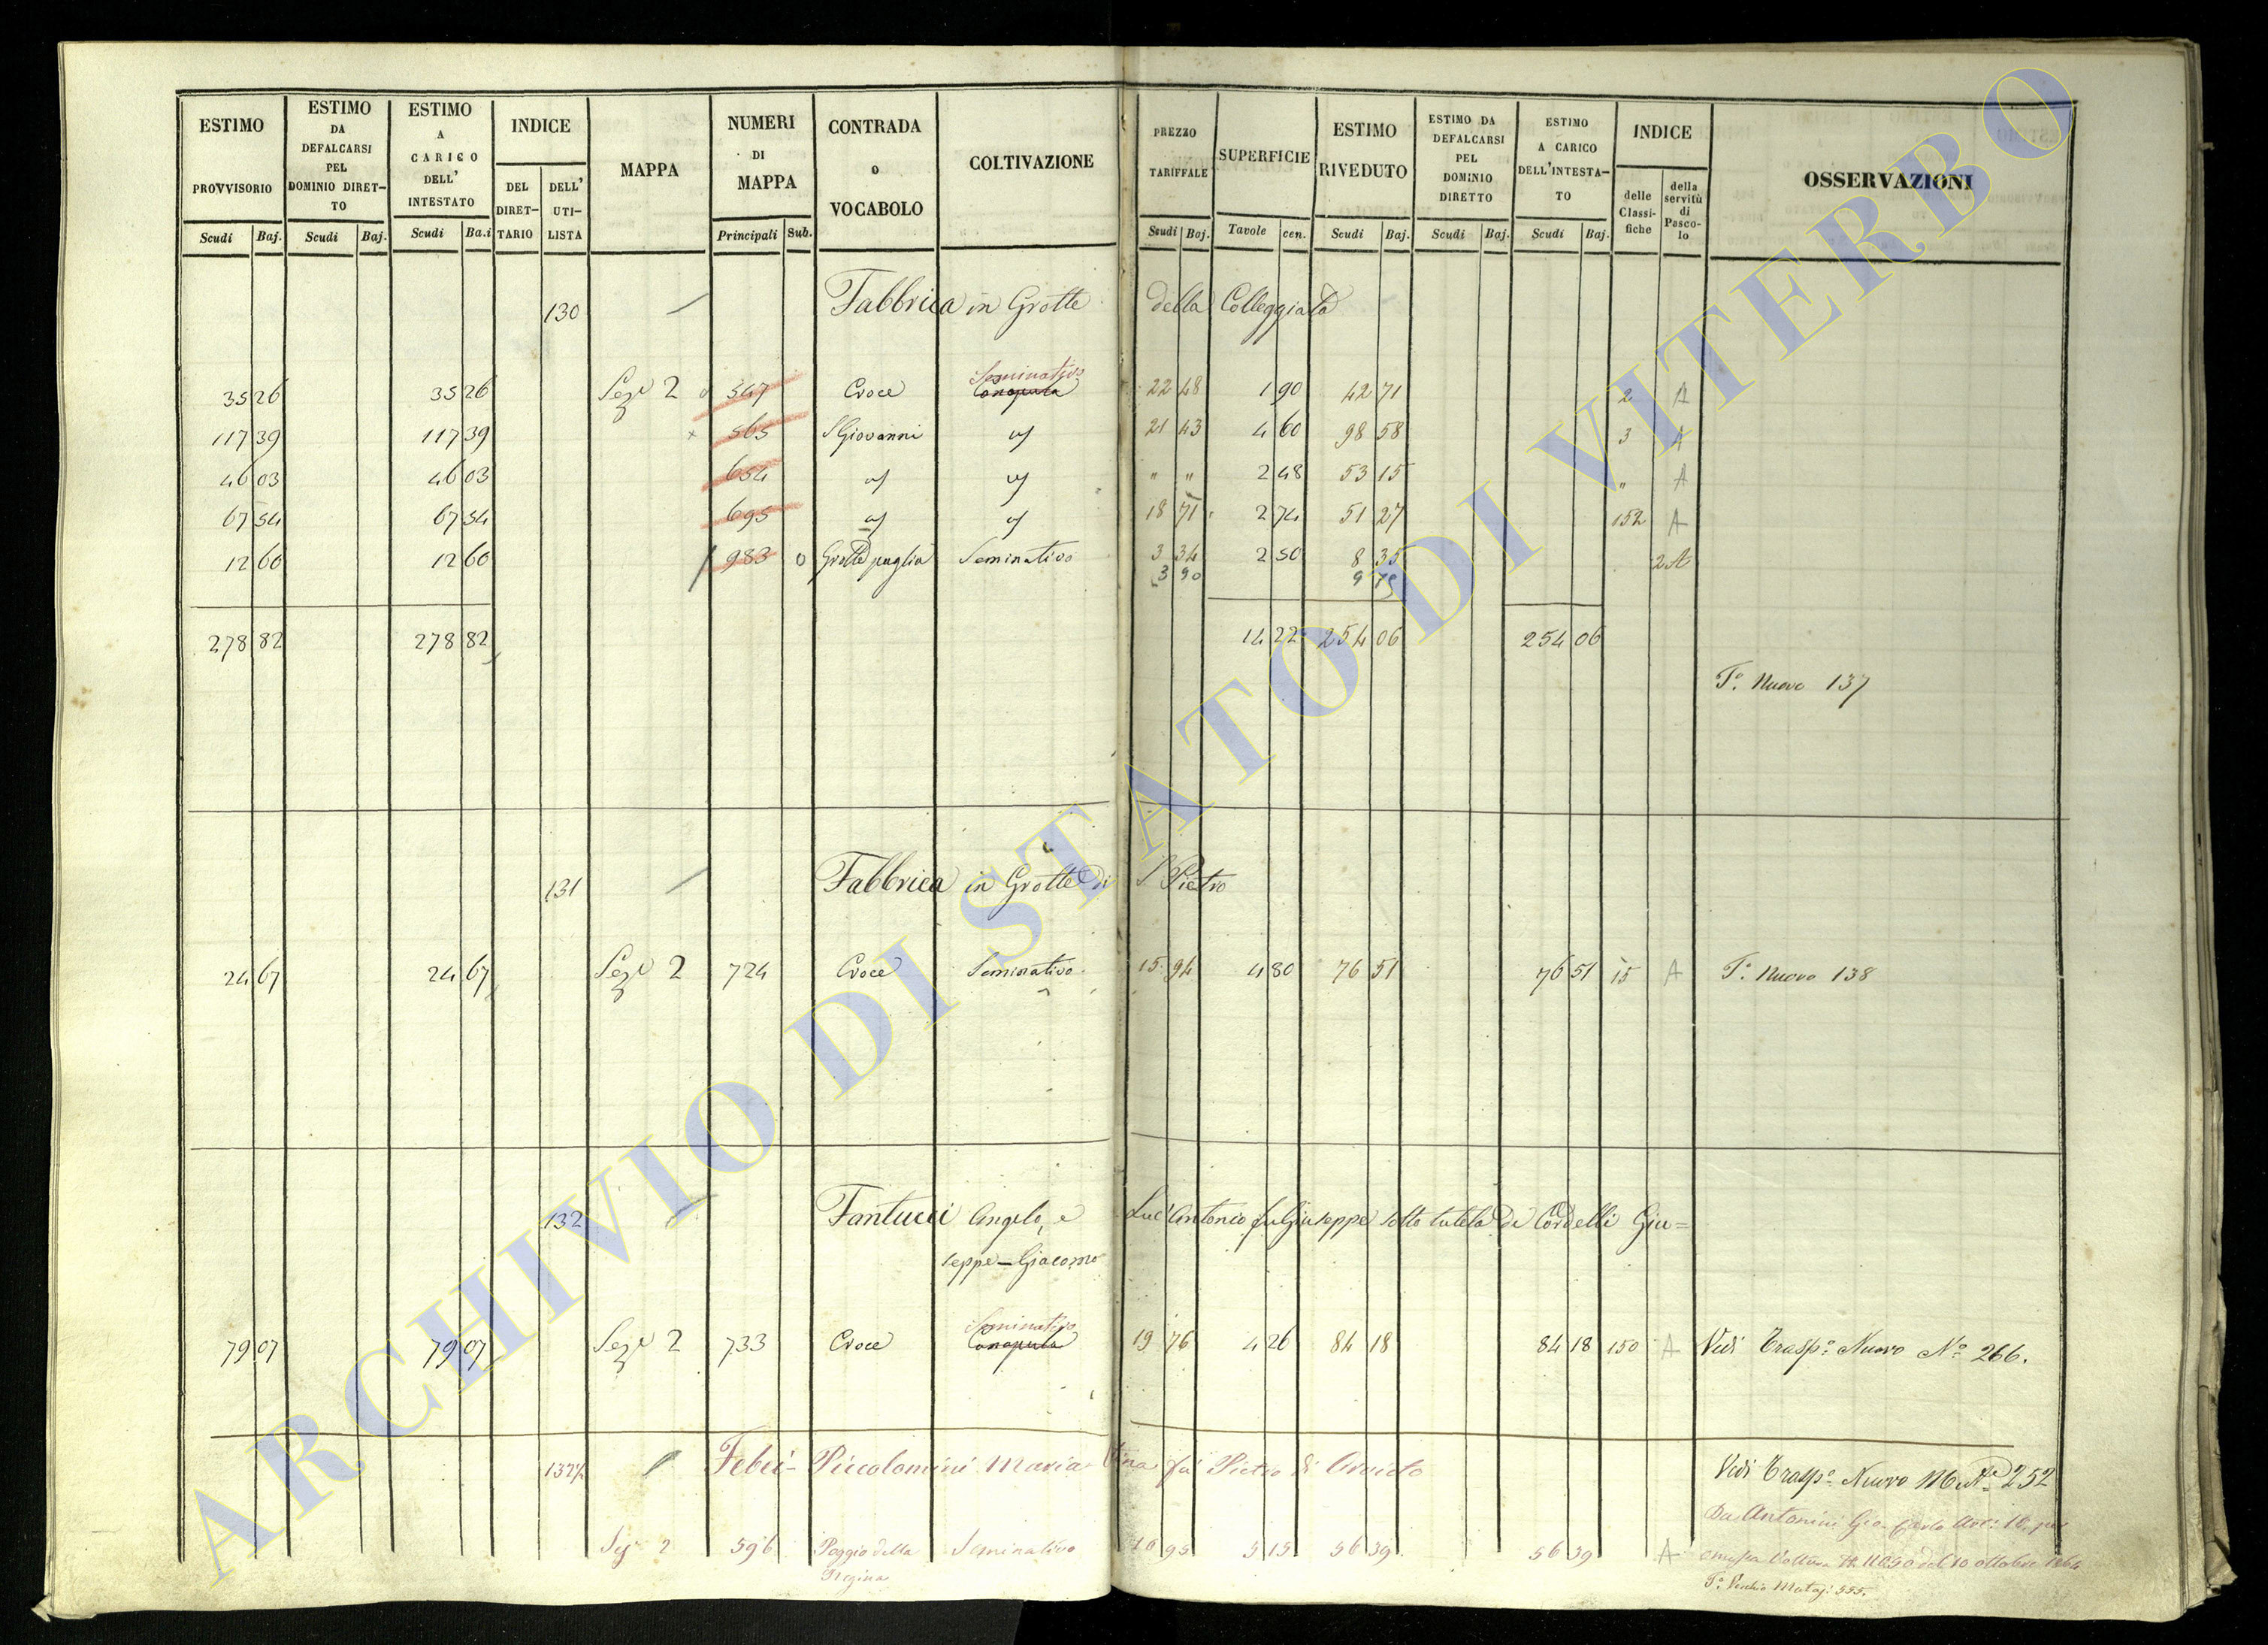 ESTIMO PROVVISORIO ESTIMO DA DEFALCARSI PEL DOMINIO DIRETTO ESTIMO A CARICO DELL' INTESTATO INDICE MAPPA NUMERI DI MAPPA CONTRADA O VOCABOLO COLTIVAZIONE PREZZO TARIFFALE SUPERFICIE ESTIMO RIVEDUTO ESTIMO DA DEFALCARSI PEL DOMINIO DIRETTO ESTIMO A CARICO DELL'INTESTATO INDICE OSSERVAZIONI
DEL DIRETTARIO DELL' UTILISTA delle Classifiche della servitù di Pascolo
Scudi Baj. Scudi Baj. Scudi Ba.i Principali Sub. Scudi Baj. Tavole cen. Scudi Baj. Scudi Baj. Scudi Baj.
130 Fabbrica in Grotte della Colleggiata
Seminativo
35 26 35 26 Sez.e 2 547 Croce Canapula 22 48 1 90 42 71 2 A
117 39 117 39 x 565 S Giovanni 21 43 4 60 98 58 3 A
46 03 46 03 654 " " 2 48 53 15 " A
67 54 67 54 695 18 71 2 74 51 27 152 A
12 60 12 60 983 o Grotte puglia Seminativo 3 34 2 50 8 35 2 A
3 90 9 75
278 82 278 82 14 22 254 06 254 06
T.o Nuovo 137
131 Fabbrica in Grotte di S Pietro
24 67 24 67 Sez.e 2 724 Croce Seminativo 15 94 4 80 76 51 76 51 15 A T.o Nuovo 138
132 Fantucci Angelo, e Luc'Antonio fu Giuseppe sotto tutela di Cordelli Giu=
seppe=Giacomo
Seminativo
79 07 79 07 Sez.e 2 733 Croce Canapula 19 76 4 26 84 18 84 18 150 A Vedi Trasp.o Nuovo N.o 266.
132½ Febei-Piccolomini Maria fu Pietro di Vedi Trasp.o Nuovo 252
Da Antonini
Sez 2 596 Poggio della Seminativo 10 95 5 15 56 39 56 39 A del 10 ottobre
Regina
T.o Vecchio 555.
ARCHIVIO DI STATO DI VITERBO